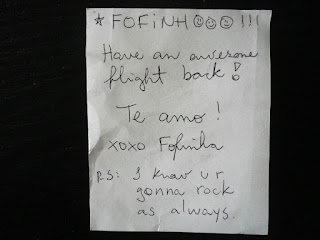 * FOFiNHOOO!!!
Have an awesome
flight back!
Te amo!
xoxo Fofinha
P.S: I know u r
gonna rock
as always.